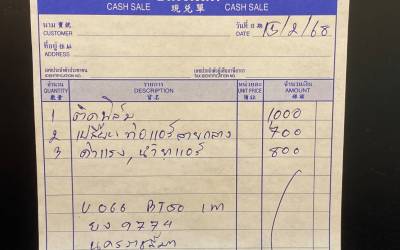 CASH SALE 現兌單 CASH SALE
นาม 寶號
CUSTOMER
วันที่ 日期
DATE 15/2/68
ที่อยู่ 住址
เลขประจำตัวประชาชน
IDENTIFICATION NO.
เลขประจำตัวผู้เสียภาษีอากร
TAX IDENTIFICATION NO.
จำนวน รายการ หน่วยละ จำนวนเงิน
QUANTITY DESCRIPTION UNIT PRICE AMOUNT
數量 貨名 價銀
1 ติดฟิล์ม 1000
2 เปลี่ยนท่อแอร์สายกลาง 700
3 ค่าแรง, น้ำยาแอร์ 800
บง 9774
นครราชสีมา